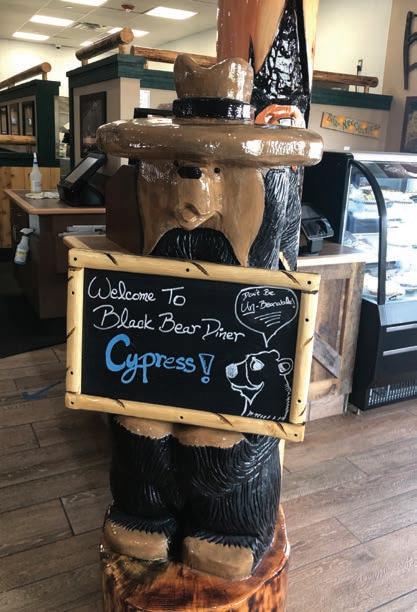 Welcome To
Black Bear Diner
Cypress!
Don't Be
Un-Bearable!